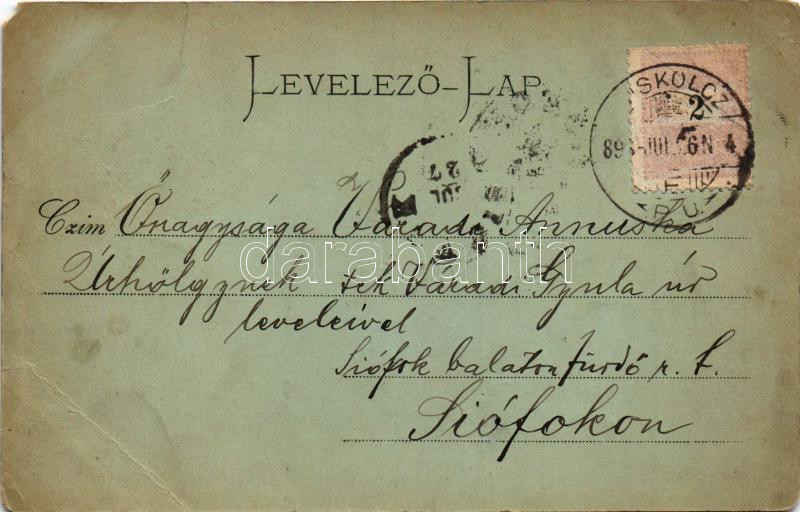 LEVELEZŐ-LAP
MISKOLCZ
2
898 JUL. 26 N 4
P.U.
27
JUL
Czim Őnagysága Váradi Annuska
Úrhölgynek tek Váradi Gyula úr
leveleivel
Siófok balaton fürdő r. t.
Siófokon
darabanth